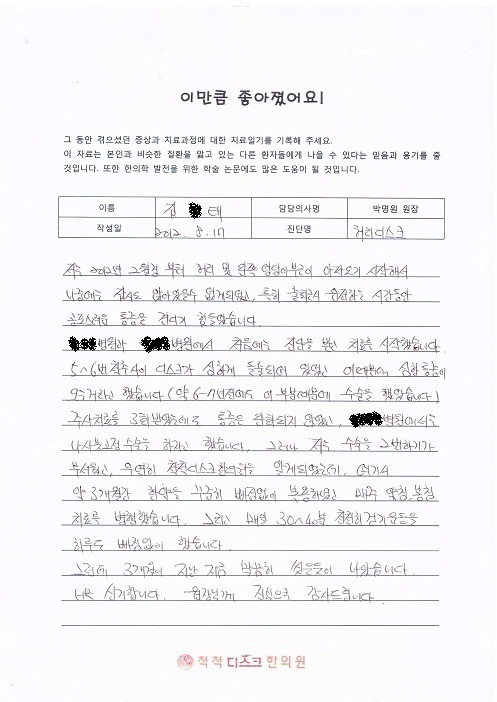 이만큼 좋아졌어요!
그 동안 겪으셨던 증상과 치료과정에 대한 치료일기를 기록해 주세요.
이 자료는 본인과 비슷한 질환을 앓고 있는 다른 환자들에게 나을 수 있다는 믿음과 용기를 줄
것입니다. 또한 한의학 발전을 위한 학술 논문에도 많은 도움이 될 것입니다.
이름 김 태 담당의사명 박명원 원장
작성일 2012. 8. 17 진단명 허리디스크
저는 2012년 2월경 부터 허리 및 왼쪽 엉덩이부근이 아파오기 시작해서
나중에는 잠시도 앉아있을수 없게되었고, 특히 출퇴근시 운전하는 시간동안
공포스러운 통증을 견디기 힘들었습니다.
병원과 병원에서 처음에는 진단을 받고 치료를 시작했습니다
5~6번 척추사이 디스크가 심하게 돌출되어 있었고 이때문에 심한통증이
있을거라고 했습니다 (약 6~7년전에도 이 부분때문에 수술을 했었습니다)
주사치료를 3회 받았는데도 통증은 완화되지 않았고, 병원에서는
나사못고정수술을 하자고 했습니다. 그러나 저는 수술을 그렇게하기가
무서웠고, 우연히 척척디스크한의원을 알게되었는데, 여기서
약 3개월간 한약을 꾸준히 빠짐없이 복용하였고 매주 약침, 봉침
치료를 병행했습니다. 그리고 매일 30~40분 천천히 걷기운동을
하루도 빠짐없이 했습니다.
그러니 3개월이 지난 지금 말끔히 씻은듯이 나았습니다.
너무 신기합니다. 원장님께 진심으로 감사드립니다
척척디스크한의원